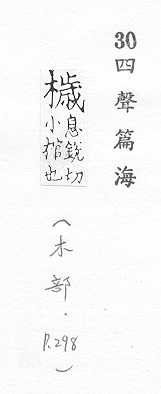 30四聲篇海
息銳切
小棺也
（木部・P.298）